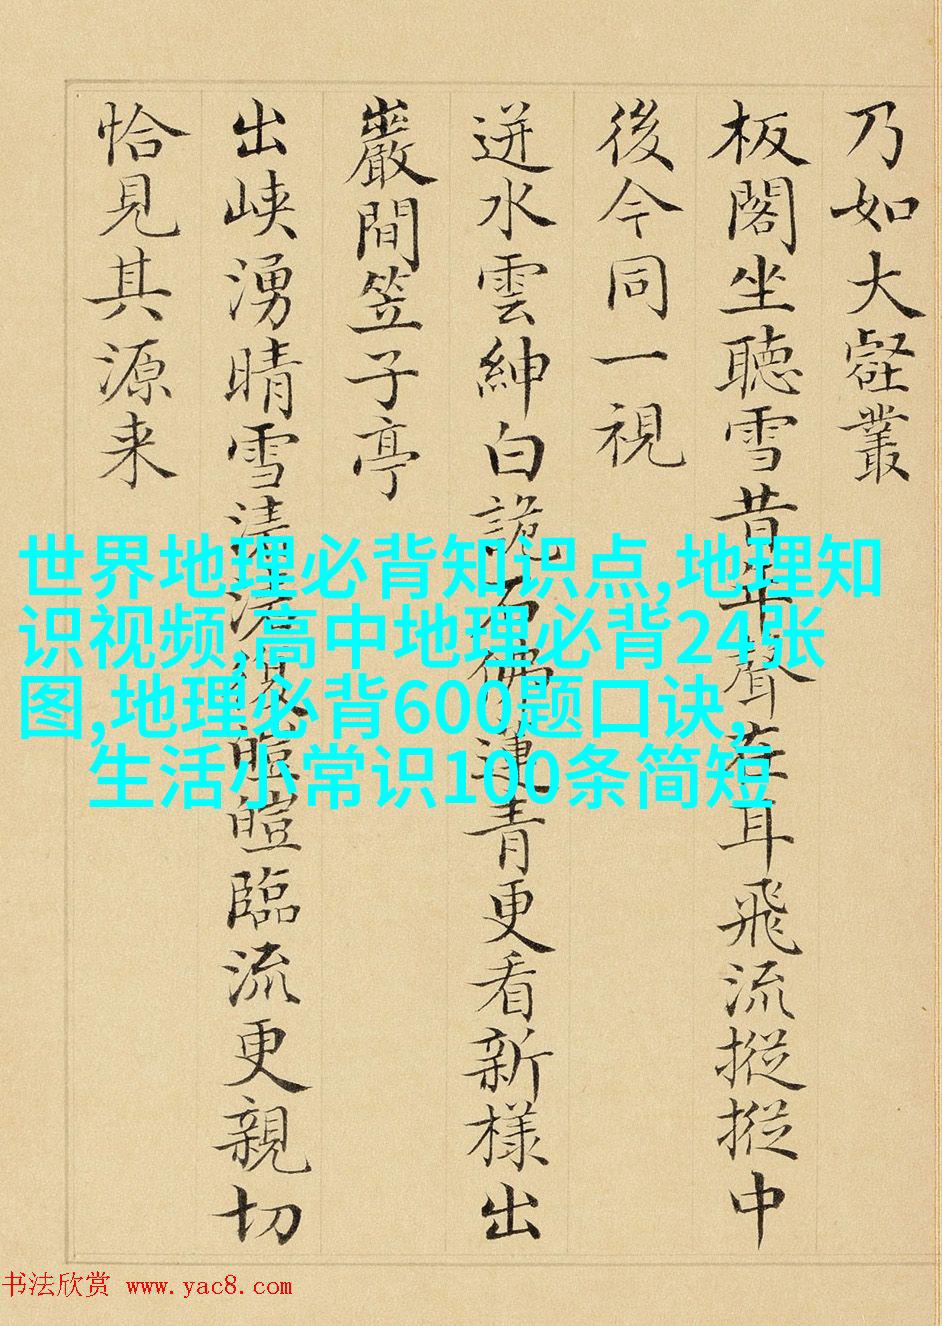 乃如大壑叢
板閣坐聽雪昔年聲在耳飛流摐摐中
後今同一視
迸水雲紳白詭石佛蓮青更看新様出
巖間笠子亭
出峽湧晴雪清皚皚臨流更親切
恰見其源来
世界地理必背知识点,地理知
识视频,高中地理必背24张
图,地理必背600题口诀,
生活小常识100条简短
书法欣赏 www.yac8.com